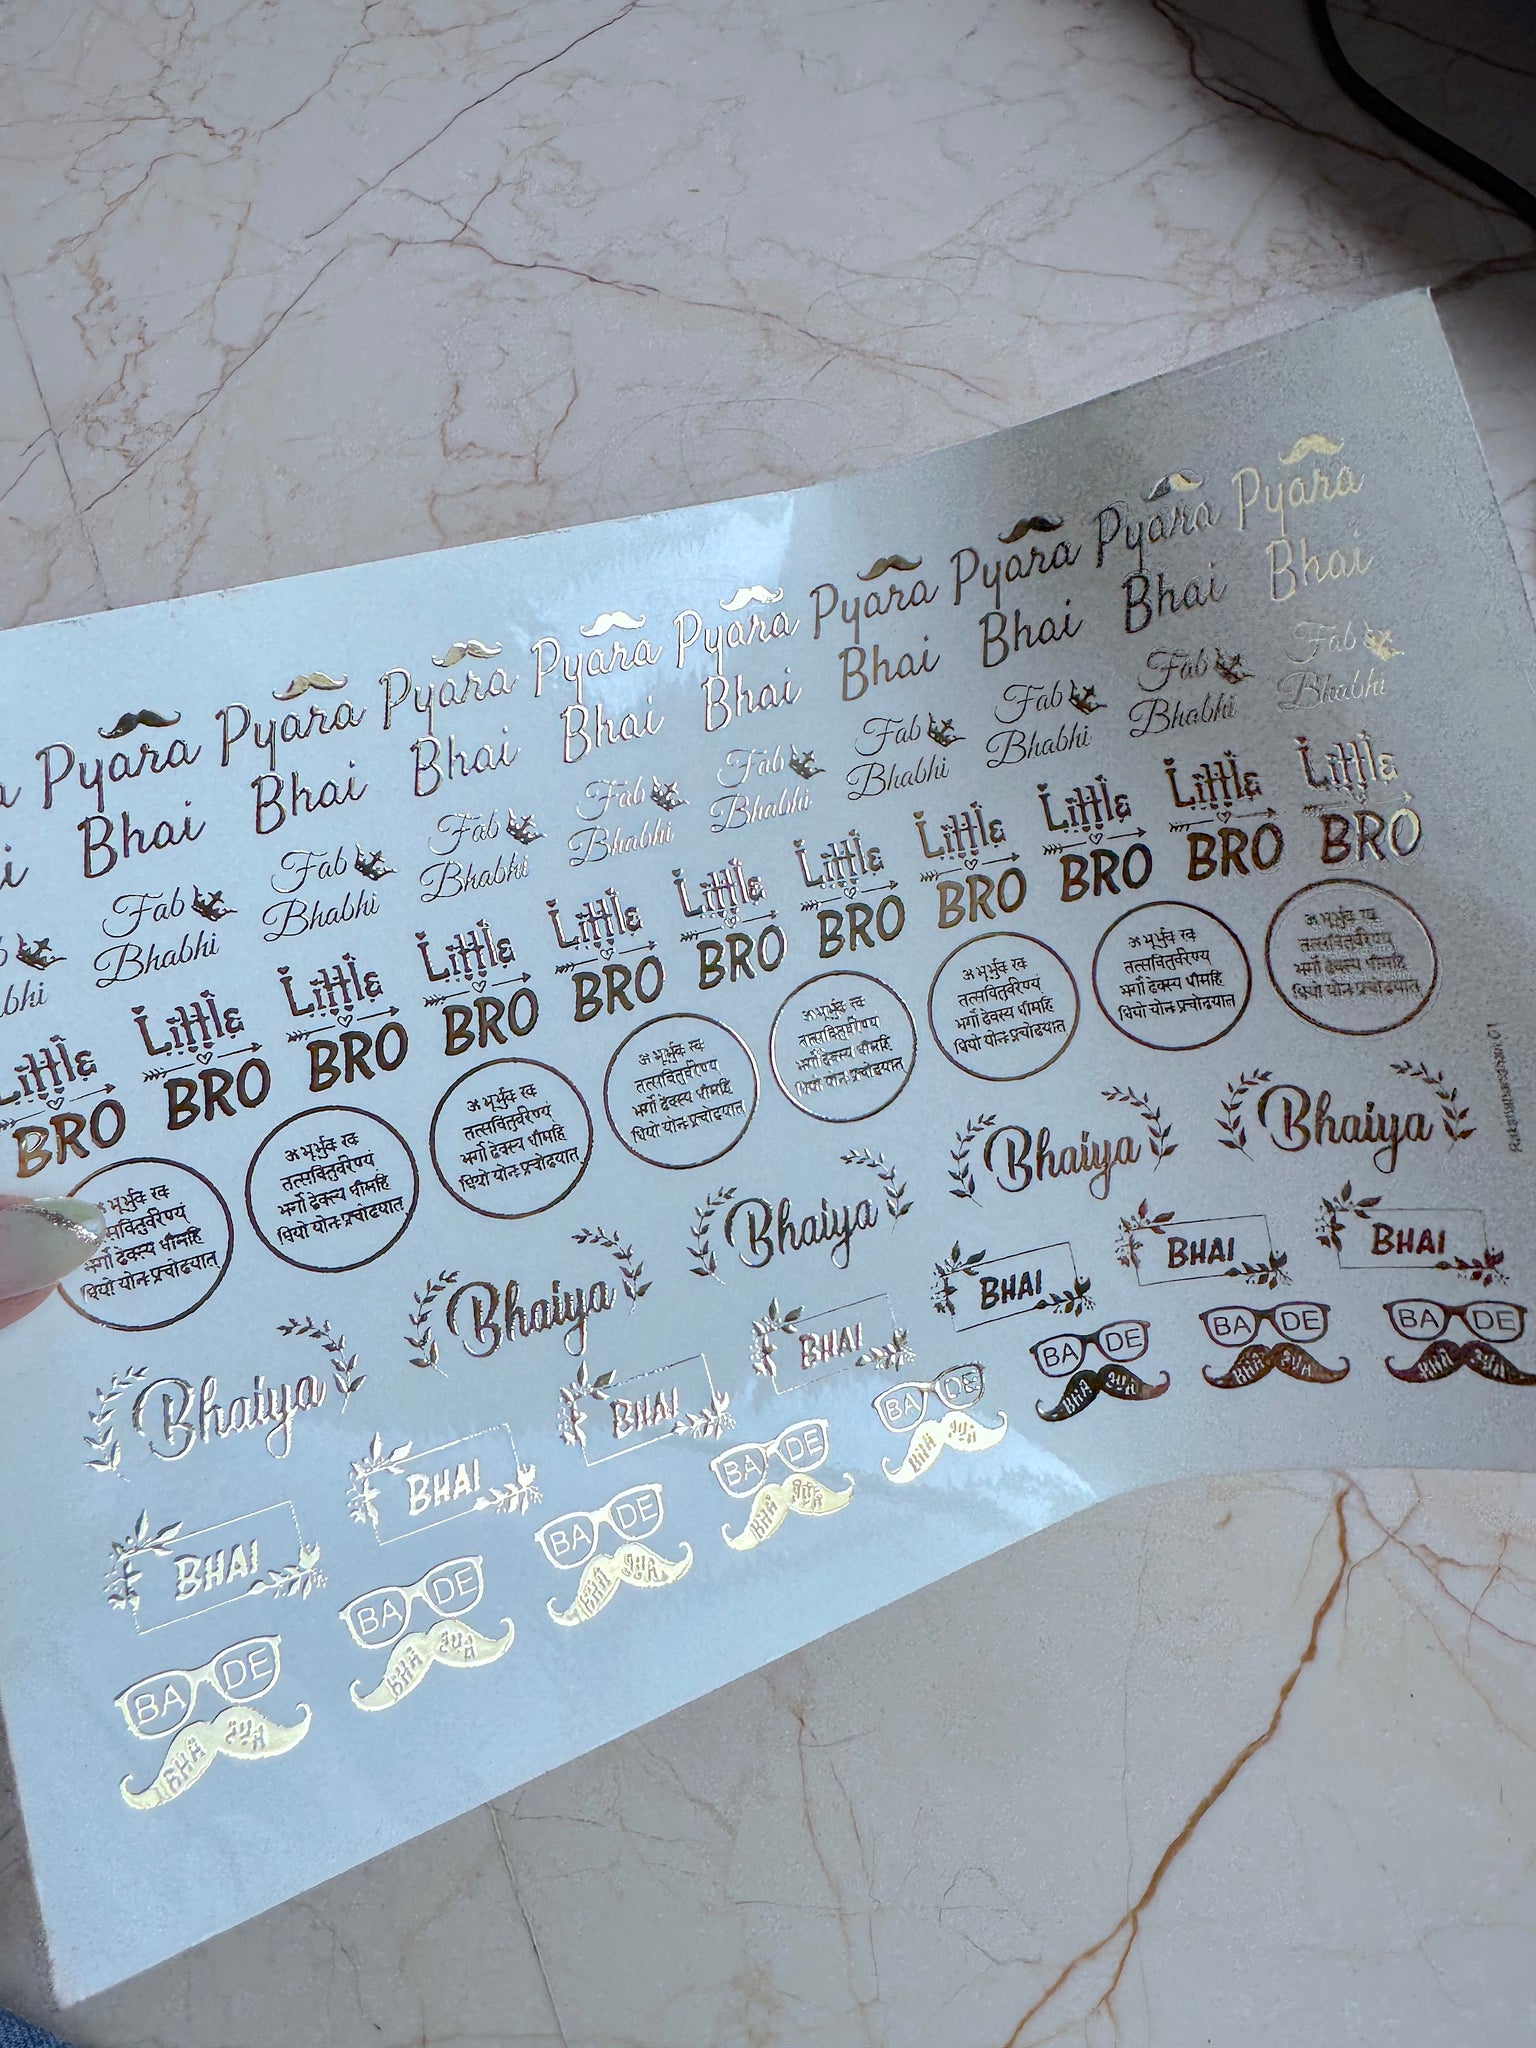 Pyara Pyara Pyara Pyara Pyara Pyara Pyara Pyara Pyara
Bhai Bhai Bhai Bhai Bhai Bhai Bhai Bhai Bhai
Fab Fab Fab Fab Fab Fab Fab Fab Fab
Bhabhi Bhabhi Bhabhi Bhabhi Bhabhi Bhabhi Bhabhi Bhabhi Bhabhi
Little Little Little Little Little Little Little Little Little Little Little
BRO BRO BRO BRO BRO BRO BRO BRO BRO BRO BRO
ॐ भूर्भुवः स्वः ॐ भूर्भुवः स्वः ॐ भूर्भुवः स्वः ॐ भूर्भुवः स्वः ॐ भूर्भुवः स्वः ॐ भूर्भुवः स्वः ॐ भूर्भुवः स्वः
तत्सवितुर्वरेण्यं तत्सवितुर्वरेण्यं तत्सवितुर्वरेण्यं तत्सवितुर्वरेण्यं तत्सवितुर्वरेण्यं तत्सवितुर्वरेण्यं तत्सवितुर्वरेण्यं
भर्गो देवस्य धीमहि भर्गो देवस्य धीमहि भर्गो देवस्य धीमहि भर्गो देवस्य धीमहि भर्गो देवस्य धीमहि भर्गो देवस्य धीमहि भर्गो देवस्य धीमहि भर्गो देवस्य धीमहि
धियो योनः प्रचोदयात् धियो योनः प्रचोदयात् धियो योनः प्रचोदयात् धियो योनः प्रचोदयात् धियो योनः प्रचोदयात् धियो योनः प्रचोदयात् धियो योनः प्रचोदयात् धियो योनः प्रचोदयात्
Bhaiya Bhaiya Bhaiya Bhaiya Bhaiya
BHAI BHAI BHAI BHAI BHAI BHAI BHAI
BA DE BA DE BA DE BA DE BA DE BA DE BA DE BA DE
BHA BHA BHA BHA BHA BHA BHA BHA